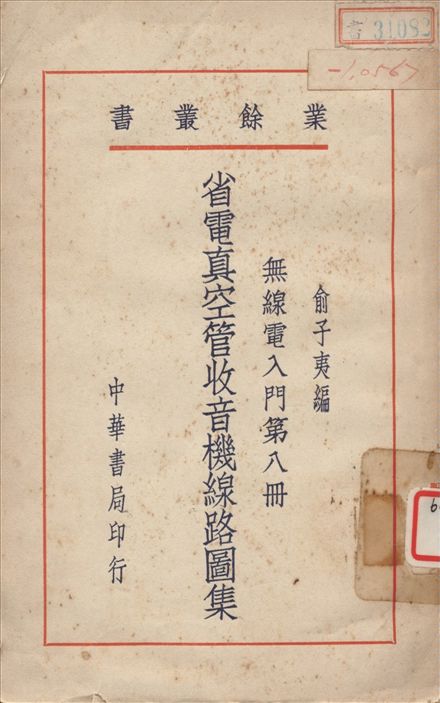 書 31082
-1,0567
業餘叢書
俞子夷編
無線電入門第八冊
省電真空管收音機線路圖集
中華書局印行
6